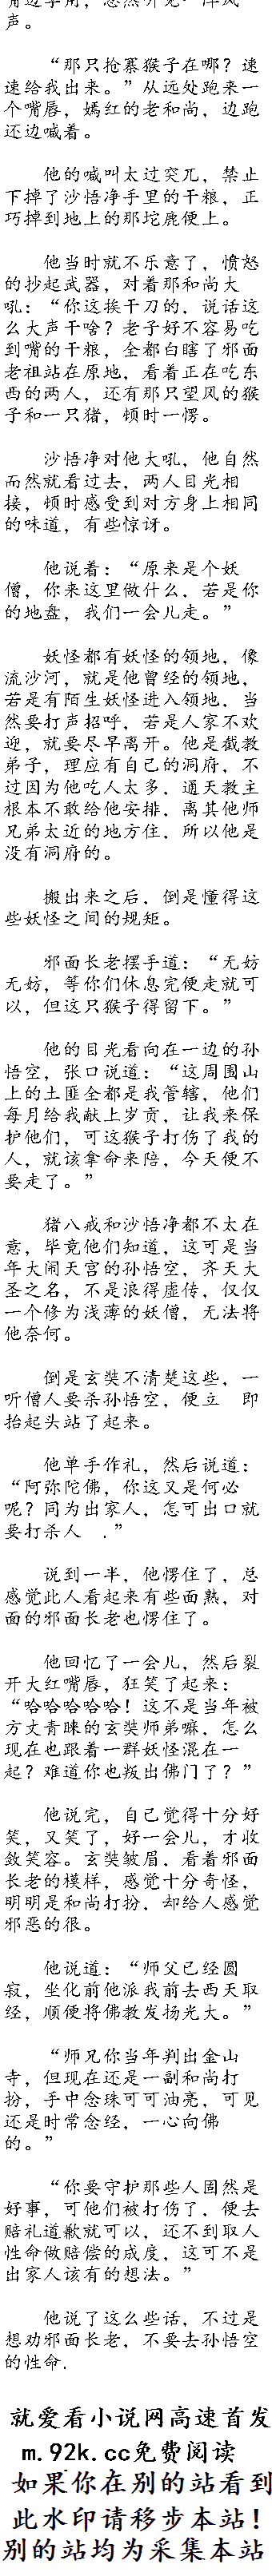 声。
“那只抢寨猴子在哪？速
速给我出来。”从远处跑来一
个嘴唇，嫣红的老和尚，边跑
还边喊着。
他的喊叫太过突兀，禁止
下掉了沙悟净手里的干粮，正
巧掉到地上的那坨鹿便上。
他当时就不乐意了，愤怒
的抄起武器，对着那和尚大
吼：“你这挨千刀的，说话这
么大声干啥？老子好不容易吃
到嘴的干粮，全都白瞎了邪面
老祖站在原地，看着正在吃东
西的两人，还有那只望风的猴
子和一只猪，顿时一愣。
沙悟净对他大吼，他自然
而然就看过去，两人目光相
接，顿时感受到对方身上相同
的味道，有些惊讶。
他说着：“原来是个妖
僧，你来这里做什么，若是你
的地盘，我们一会儿走。”
妖怪都有妖怪的领地，像
流沙河，就是他曾经的领地，
若是有陌生妖怪进入领地，当
然要打声招呼，若是人家不欢
迎，就要尽早离开。他是截教
弟子，理应有自己的洞府，不
过因为他吃人太多，通天教主
根本不敢给他安排，离其他师
兄弟太近的地方住，所以他是
没有洞府的。
搬出来之后，倒是懂得这
些妖怪之间的规矩。
邪面长老摆手道：“无妨
无妨，等你们休息完便走就可
以，但这只猴子得留下。”
他的目光看向在一边的孙
悟空，张口说道：“这周围山
上的土匪全都是我管辖，他们
每月给我献上岁贡，让我来保
护他们，可这猴子打伤了我的
人，就该拿命来陪，今天便不
要走了。”
猪八戒和沙悟净都不太在
意，毕竟他们知道，这可是当
年大闹天宫的孙悟空，齐天大
圣之名，不是浪得虚传，仅仅
一个修为浅薄的妖僧，无法将
他奈何。
倒是玄奘不清楚这些，一
听僧人要杀孙悟空，便立 即
抬起头站了起来。
他单手作礼，然后说道：
“阿弥陀佛，你这又是何必
呢？同为出家人，怎可出口就
要打杀人 .”
说到一半，他愣住了，总
感觉此人看起来有些面熟，对
面的邪面长老也愣住了。
他回忆了一会儿，然后裂
开大红嘴唇，狂笑了起来：
“哈哈哈哈哈！这不是当年被
方丈青睐的玄奘师弟嘛，怎么
现在也跟着一群妖怪混在一
起？难道你也叛出佛门了？”
他说完，自己觉得十分好
笑，又笑了，好一会儿，才收
敛笑容。玄奘皱眉，看着邪面
长老的模样，感觉十分奇怪，
明明是和尚打扮，却给人感觉
邪恶的很。
他说道：“师父已经圆
寂，坐化前他派我前去西天取
经，顺便将佛教发扬光大。”
“师兄你当年判出金山
寺，但现在还是一副和尚打
扮，手中念珠可可油亮，可见
还是时常念经，一心向佛
的。”
“你要守护那些人固然是
好事，可他们被打伤了，便去
赔礼道歉就可以，还不到取人
性命做赔偿的成度，这可不是
出家人该有的想法。”
他说了这么些话，不过是
想劝邪面长老，不要去孙悟空
的性命.
就爱看小说网高速首发
m.92k.cc免费阅读
如果你在别的站看到
此水印请移步本站！
别的站均为采集本站